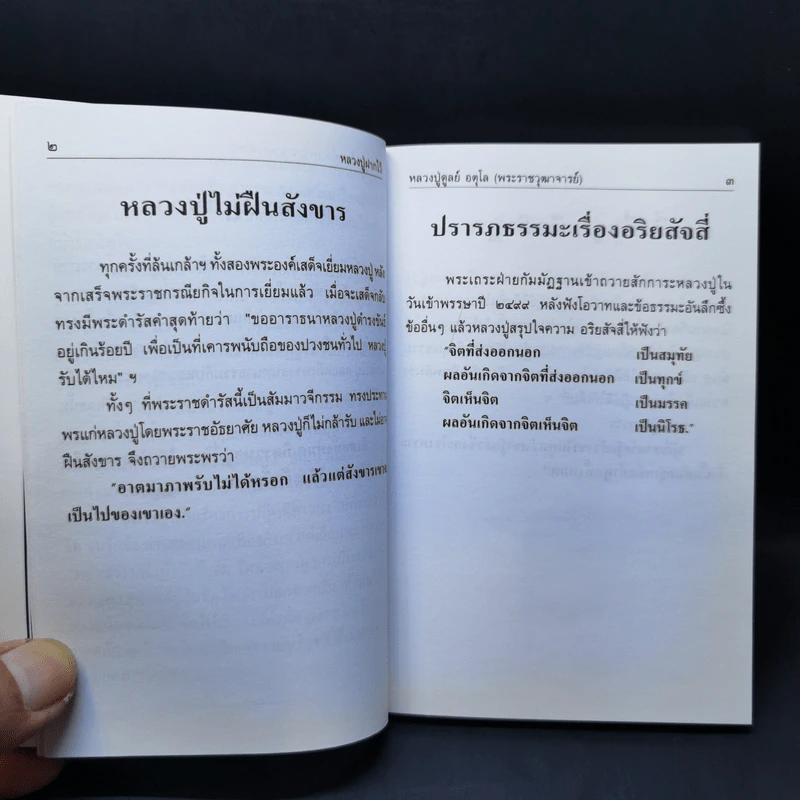 ๒
หลวงปู่ฝากไว้
หลวงปู่ไม่ฝืนสังขาร
ทุกครั้งที่ล้นเกล้าฯ ทั้งสองพระองค์เสด็จเยี่ยมหลวงปู่ หลัง
จากเสร็จพระราชกรณียกิจในการเยี่ยมแล้ว เมื่อจะเสด็จกลับ
ทรงมีพระดำรัสคำสุดท้ายว่า "ขออาราธนาหลวงปู่ดำรงขันธ์
อยู่เกินร้อยปี เพื่อเป็นที่เคารพนับถือของปวงชนทั่วไป หลวงปู่
รับได้ไหม" ฯ
ทั้งๆ ที่พระราชดำรัสนี้เป็นสัมมาวจีกรรม ทรงประทาน
พรแก่หลวงปู่โดยพระราชอัธยาศัย หลวงปู่ก็ไม่กล้ารับ และไม่อาจ
ฝืนสังขาร จึงถวายพระพรว่า
"อาตมาภาพรับไม่ได้หรอก แล้วแต่สังขารเขาจะ
เป็นไปของเขาเอง."
หลวงปู่ดูลย์ อตุโล (พระราชวุฒาจารย์)
๓
ปรารภธรรมะเรื่องอริยสัจสี่
พระเถระฝ่ายกัมมัฏฐานเข้าถวายสักการะหลวงปู่ใน
วันเข้าพรรษาปี ๒๔๙๙ หลังฟังโอวาทและข้อธรรมะอันลึกซึ้ง
ข้ออื่นๆ แล้วหลวงปู่สรุปใจความ อริยสัจสี่ให้ฟังว่า
"จิตที่ส่งออกนอก เป็นสมุทัย
ผลอันเกิดจากจิตที่ส่งออกนอก เป็นทุกข์
จิตเห็นจิต เป็นมรรค
ผลอันเกิดจากจิตเห็นจิต เป็นนิโรธ."